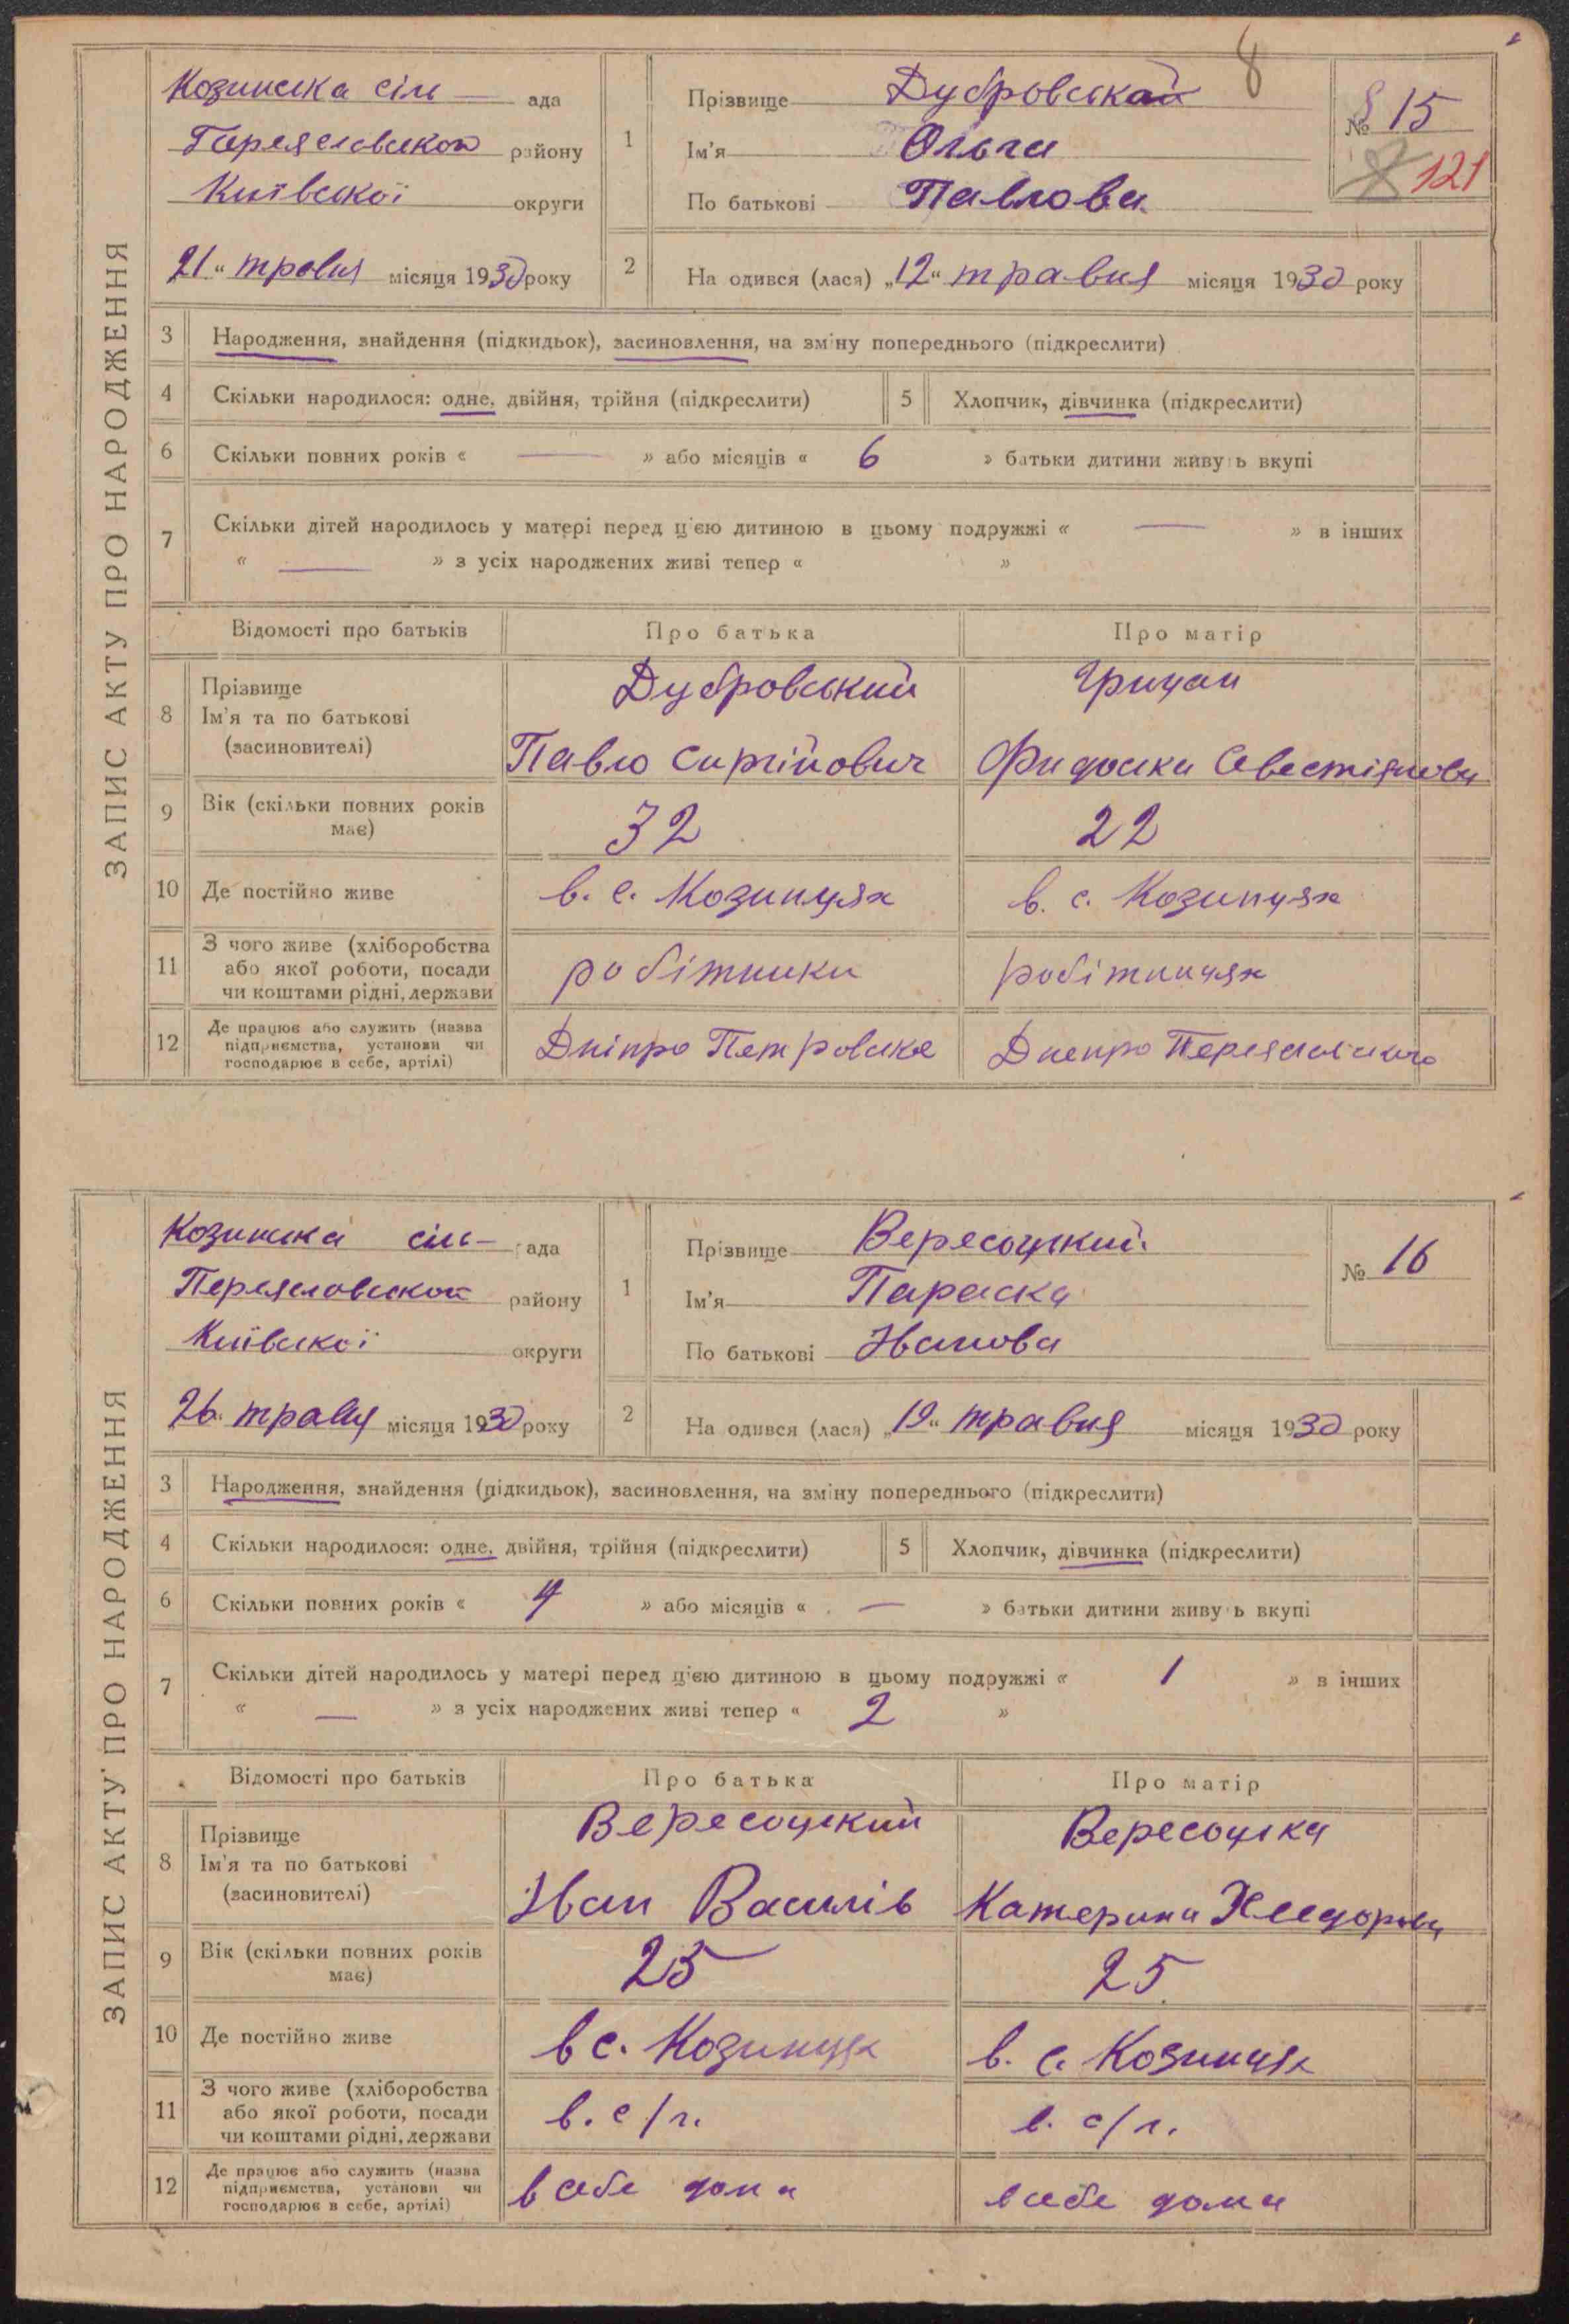 8
ЗАПИС АКТУ ПРО НАРОДЖЕННЯ
Козинська сіль — ада
Переяславської району
Київської округи
21 " травня місяця 1930 року
1
Прізвище Дубровський
Ім'я Ольга
По батькові Павлова
№ 15
121
2
На одився (лася) „12" травня місяця 1930 року
3 Народження, знайдення (підкидьок), засиновлення, на зміну попереднього (підкреслити)
4 Скільки народилося: одне, двійня, трійня (підкреслити) 5 Хлопчик, дівчинка (підкреслити)
6 Скільки повних років « — » або місяців « 6 » батьки дитини живуть вкупі
7 Скільки дітей народилось у матері перед цією дитиною в цьому подружжі « — » в інших
« — » з усіх народжених живі тепер « »
Відомості про батьків Про батька Про матір
8 Прізвище Ім'я та по батькові (засиновителі)
Дубровський Грицай
Павло Сиргійович
9 Вік (скільки повних років має) 32 22
10 Де постійно живе в. с. Козинцях в. с. Козинцях
11 З чого живе (хліборобства або якої роботи, посади чи коштами рідні, держави робітники робітницях
12 Де працює або служить (назва підприємства, установи чи господарює в себе, артілі) Дніпро Петровське Днепро
ЗАПИС АКТУ ПРО НАРОДЖЕННЯ
Козинська сіль — ада
Переяславської району
Київської округи
26 " травня місяця 1930 року
1
Прізвище Вересоцький
Ім'я Параска
По батькові Іванова
№ 16
2
На одився (лася) „19" травня місяця 1930 року
3 Народження, знайдення (підкидьок), засиновлення, на зміну попереднього (підкреслити)
4 Скільки народилося: одне, двійня, трійня (підкреслити) 5 Хлопчик, дівчинка (підкреслити)
6 Скільки повних років « 4 » або місяців « — » батьки дитини живуть вкупі
7 Скільки дітей народилось у матері перед цією дитиною в цьому подружжі « 1 » в інших
« — » з усіх народжених живі тепер « 2 »
Відомості про батьків Про батька Про матір
8 Прізвище Ім'я та по батькові (засиновителі)
Вересоцький Вересоцка
Іван Василів Катерина
9 Вік (скільки повних років має) 25 25
10 Де постійно живе в с. Козинцях в. с. Козинцях
11 З чого живе (хліборобства або якої роботи, посади чи коштами рідні, держави в. с/г. в. с/г.
12 Де працює або служить (назва підприємства, установи чи господарює в себе, артілі) в себе дома в себе дома